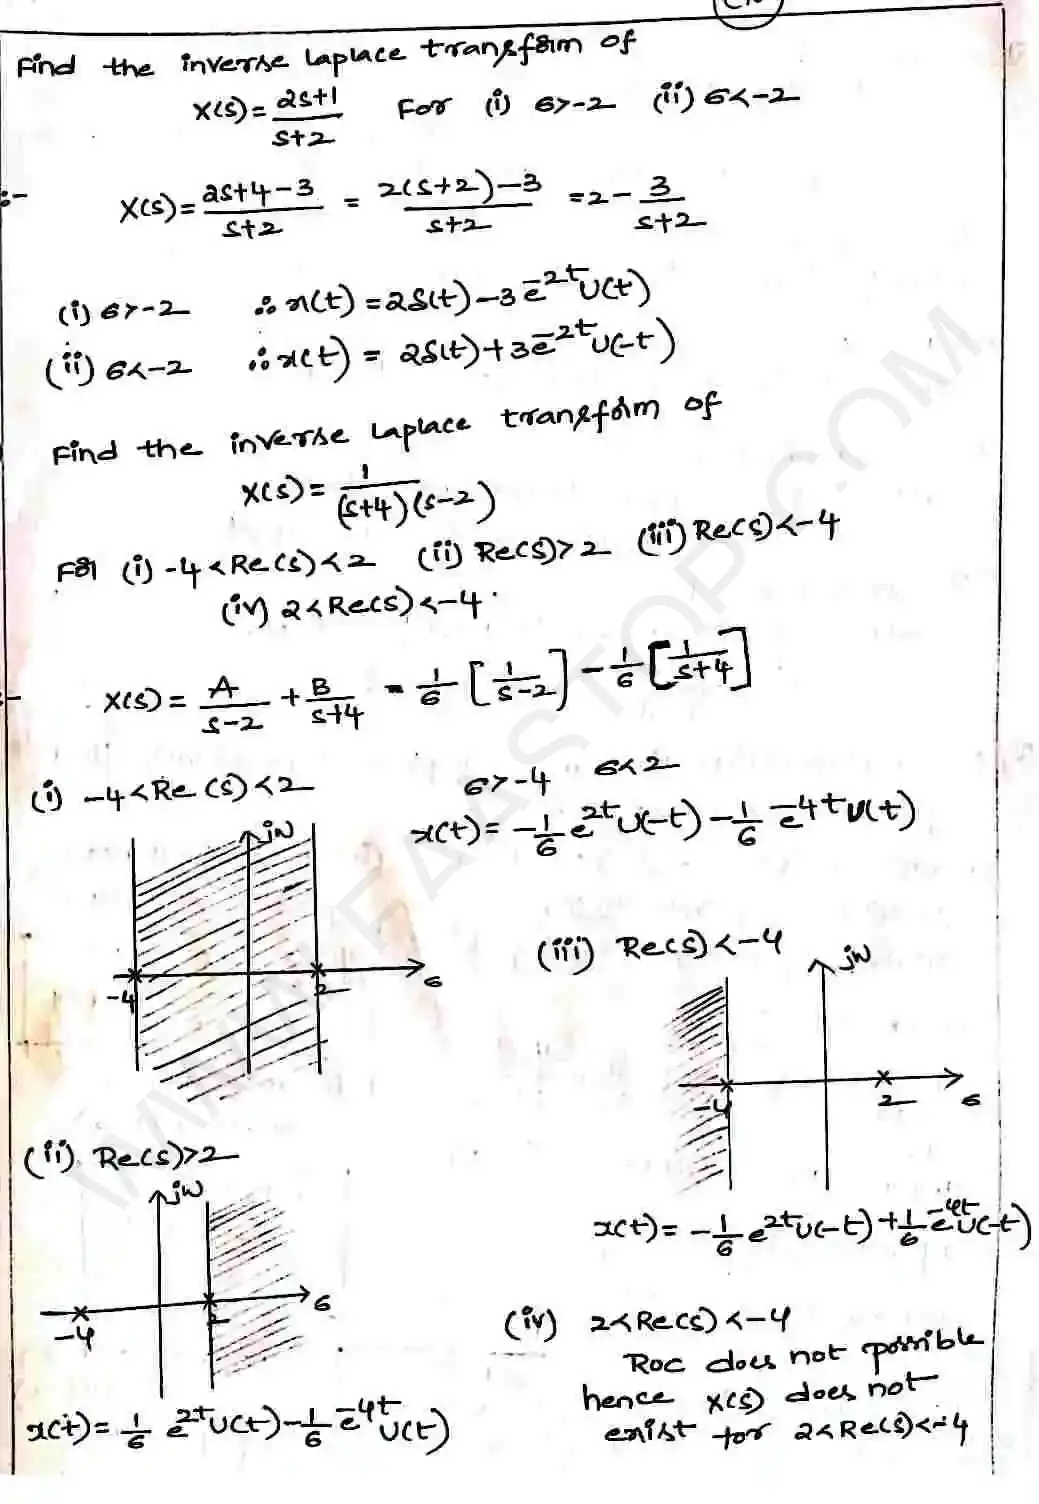 Find the inverse Laplace transform of
X(s) = 2s+1/s+2 For (i) σ>-2 (ii) σ<-2
:- X(s) = 2s+4-3/s+2 = 2(s+2)-3/s+2 = 2 - 3/s+2
(i) σ>-2 ∴ x(t) = 2δ(t) - 3e^-2t U(t)
(ii) σ<-2 ∴ x(t) = 2δ(t) + 3e^-2t U(-t)
Find the inverse Laplace transform of
X(s) = 1/(s+4)(s-2)
For (i) -4<Re(s)<2 (ii) Re(s)>2 (iii) Re(s)<-4
(iv) 2<Re(s)<-4.
:- X(s) = A/s-2 + B/s+4 = 1/6 [1/s-2] - 1/6 [1/s+4]
(i) -4<Re(s)<2 σ>-4 σ<2
x(t) = -1/6 e^2t U(-t) - 1/6 e^-4t U(t)
jω
-4 2 σ
(ii) Re(s)>2
jω
-4 2 σ
x(t) = 1/6 e^2t U(t) - 1/6 e^-4t U(t)
(iii) Re(s)<-4
jω
-4 2 σ
x(t) = -1/6 e^2t U(-t) + 1/6 e^-4t U(-t)
(iv) 2<Re(s)<-4
Roc does not possible
hence X(s) does not
exist for 2<Re(s)<-4
WWW.FAASTOP.COM